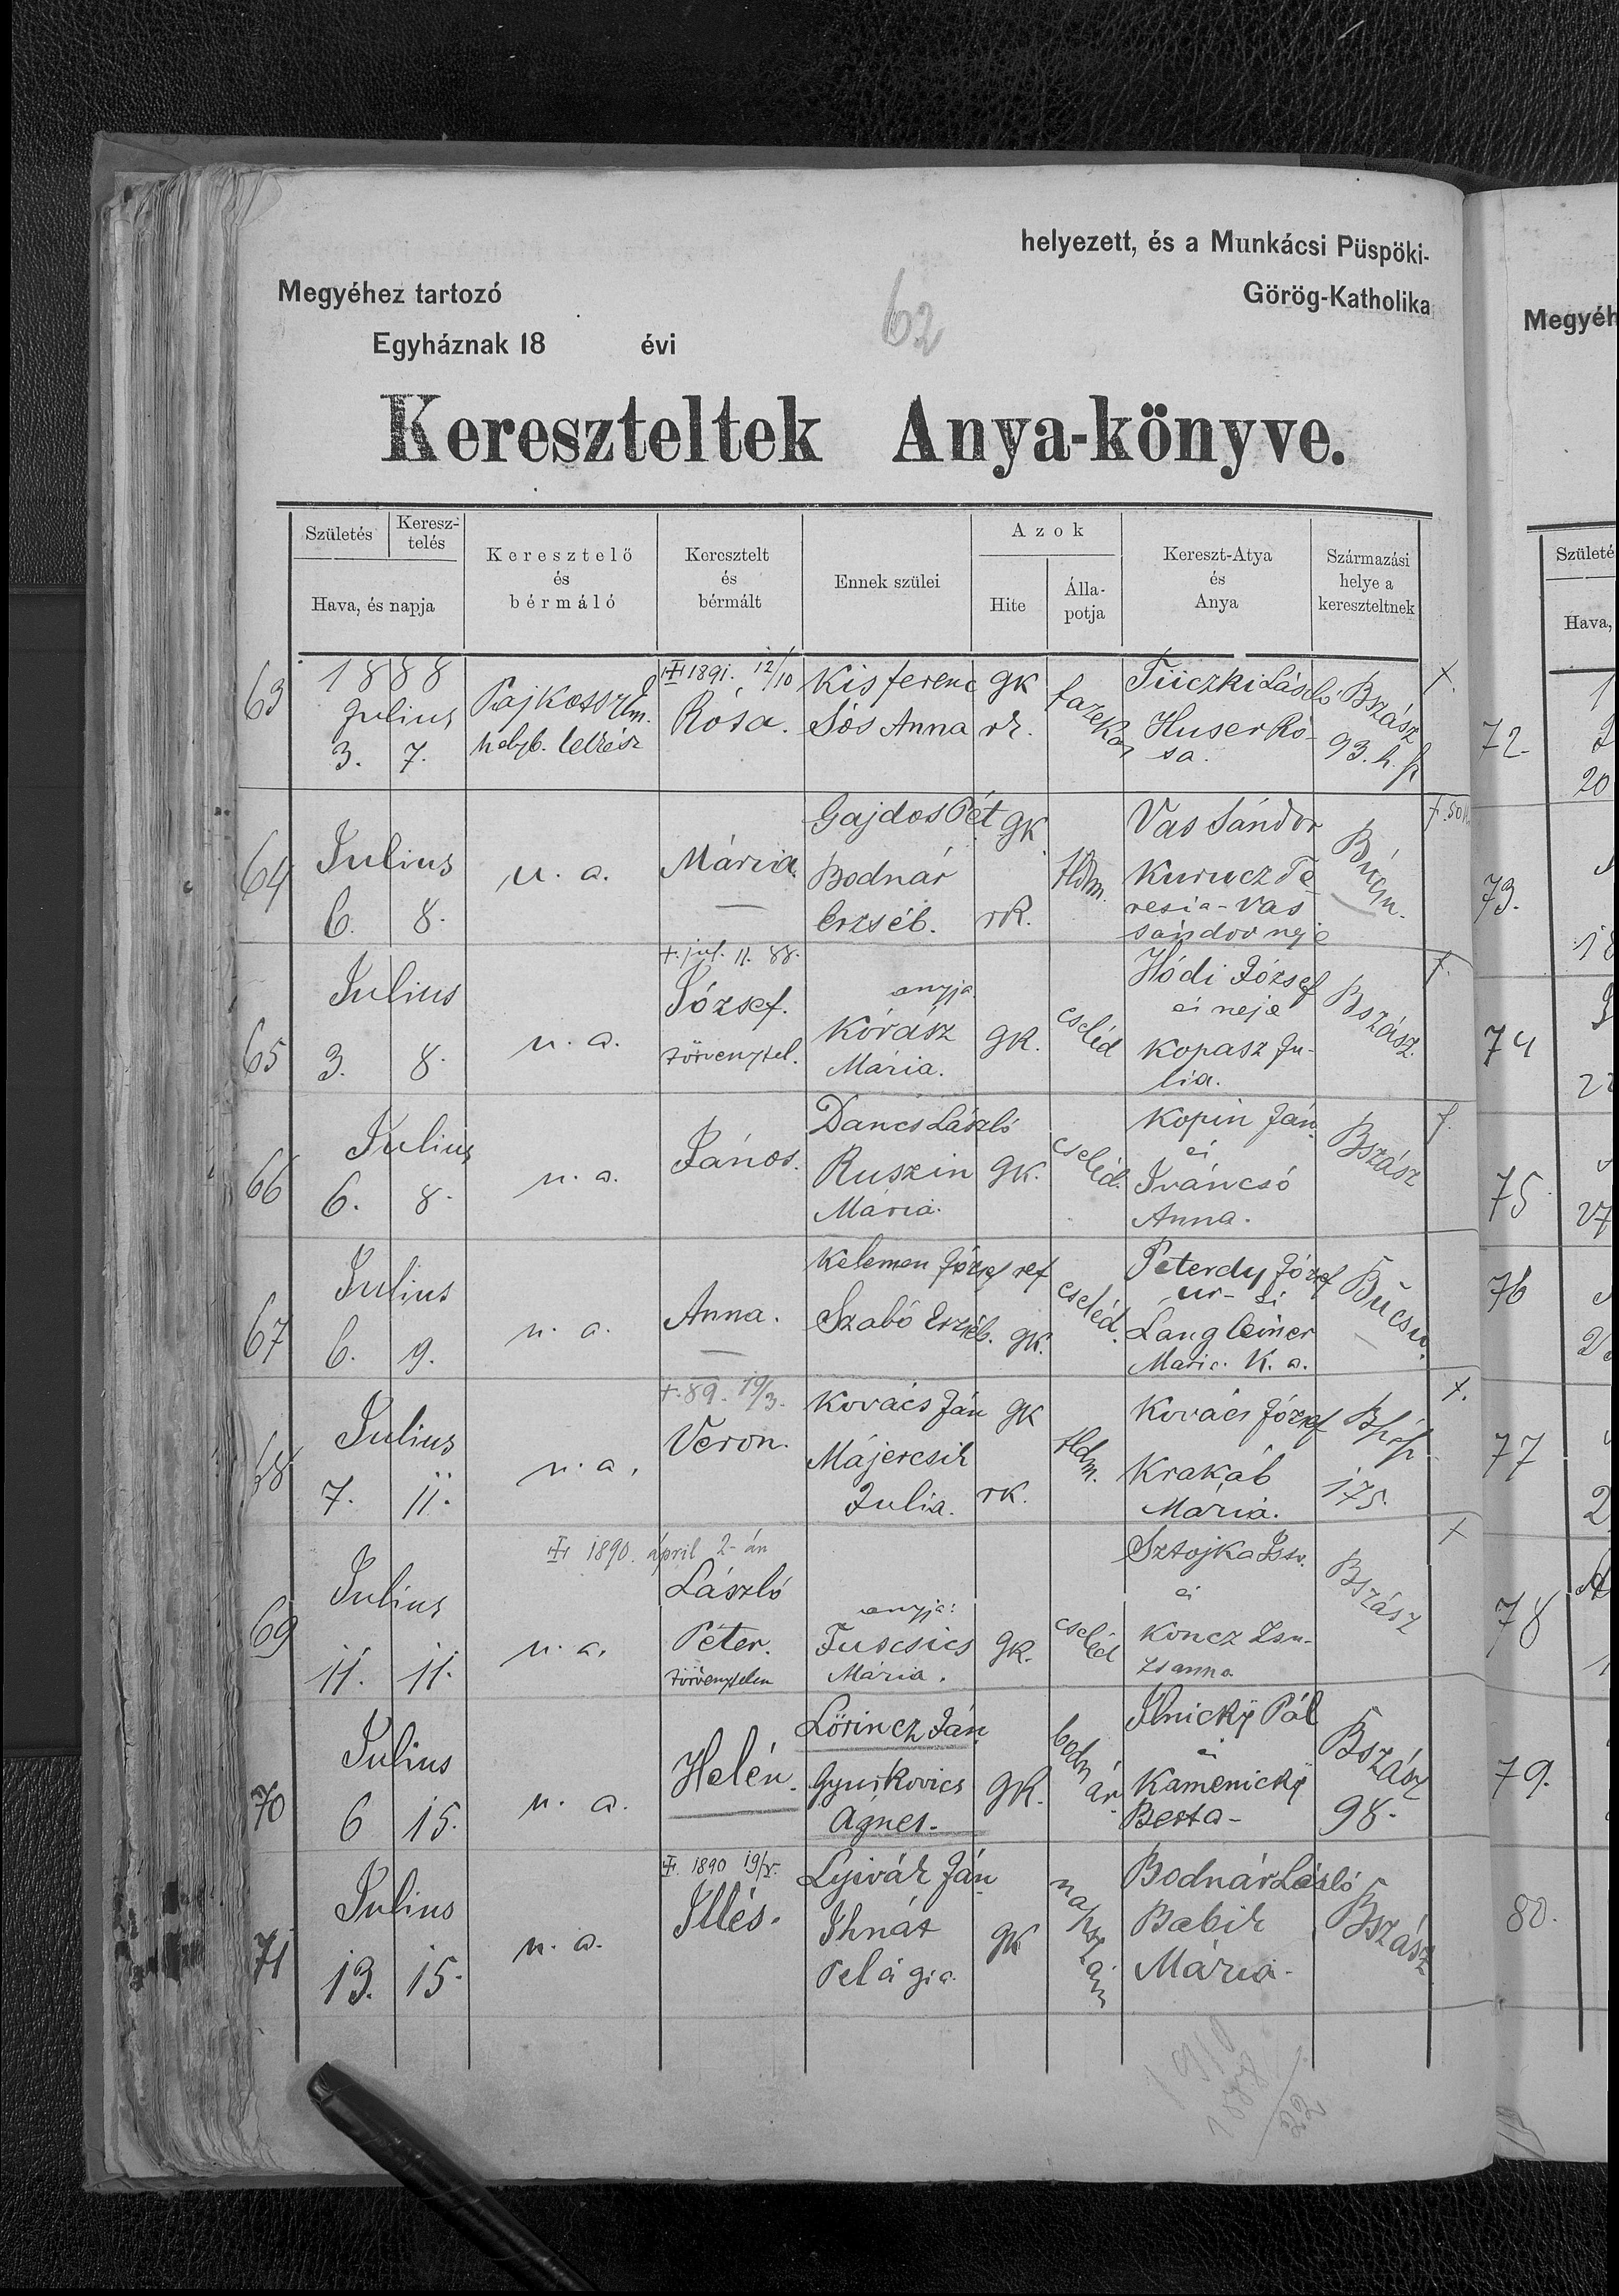 helyezett, és a Munkácsi Püspöki-
Megyéhez tartozó
Görög-Katholika
62
Egyháznak 18 évi
Kereszteltek Anya-könyve.
Születés
Keresz-
telés
Hava, és napja
Keresztelő
és
bérmáló
Keresztelt
és
bérmált
Ennek szülei
Azok
Hite
Álla-
potja
Kereszt-Atya
és
Anya
Származási
helye a
kereszteltnek
63
1888
Julius
3. 7.
helyb. lelkész
1891. 12/10
Rósa.
Kis ferenc gk
Sós Anna rk.
fazekas
Tüczki László
Huser Ró-
sa.
Bszász
93. h.
+.
64
Julius
6. 8.
u. a.
Mária
Gajdos Pét gk
Bodnár
Erzséb. rk.
fldm.
Vas Sándor
Kurucz Te
resia - Vas
Sándor neje
65
Julius
3. 8.
u. a.
+. jul. 11. 88.
József.
törvenytel.
anyja
Kórász
Mária.
gk.
cseléd
Hódi József
és neje
Kopasz Ju-
lia.
Bszász.
66
Julius
6. 8.
u. a.
János.
Dancs László
Ruszin gk.
Mária.
cseléd.
Kopin Ján.
és
Iváncsó
Anna.
Bszász
67
Julius
6. 9.
u. a.
Anna.
Kelemen József ref
Szabó Erzséb. gk.
cseléd.
Peterdy József
ur - és
Langleiner
Maria. K. a.
Bucsu.
68
Julius
7. 11.
u. a.
+. 89. 19/3.
Veron.
Kovács Ján gk
Májercsik
Julia. rk.
fldm.
Kovács József
Krakáb
Mária.
175.
+.
69
Julius
11. 11.
u. a.
1890. ápril 2-án
László
Péter.
törvenytelen
anyja:
Fuscsics
Mária.
gk.
cseléd
Sztojka Istv.
és
Koncz Zsu-
zsanna
Bszász
+
70
Julius
6 15.
u. a.
Helén.
Lőrincz Ján
Gyurkovics
Ágnes.
gk.
bodnár.
Ilnicky Pál
és
Kamenicky
Berta-
Bszász
98.
71
Julius
13. 15.
u. a.
1890 19/V.
Illés.
Lyivák Ján
Ihnát
Pelágia.
gk
napszám
Bodnár László
Babik
Mária-
Bszász
1910
1888
22
Megyéh
Születé
Hava,
72.
20
73.
18
74
75
27
76
77
78
79.
80.